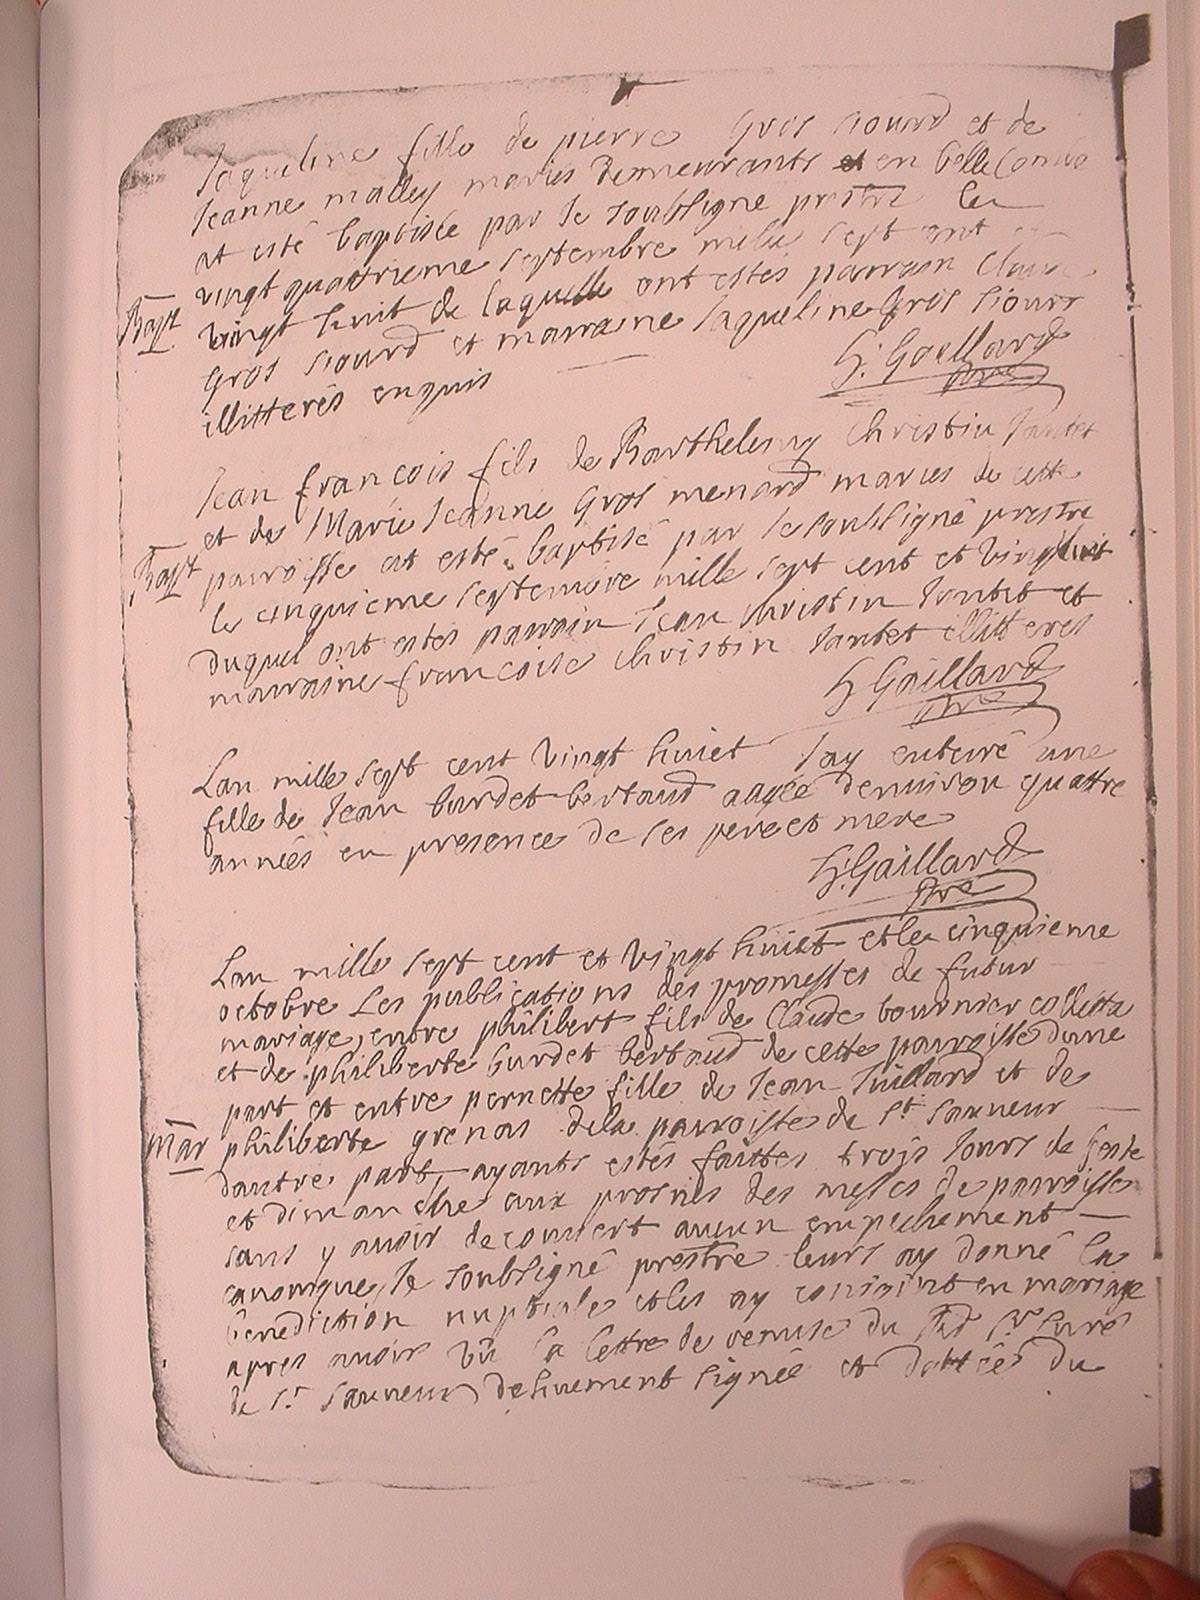 Jaqueline fille de pierre Gros siourd et de
Jeanne malley mariés Demeurants et en belle
at esté baptisée par le soubsigne prestre le
vingt quatrieme septembre mille sept cent
Bapt vingt huit de laquelle ont estés parrain Claude
Gros siourd et marraine Jaqueline Gros siourd
illitterés enquis
Gaillard
ptre
Jean francois fils de Barthelemy Christin Jantet
et de Marie Jeanne Gros menard mariés de cette
Bapt paroisse at esté baptisé par le soubsigné prestre
le cinquieme septembre mille sept cent et vingthuit
duquel ont estés parrain Jean christin Jantet et
marraine francoise Christin Jantet illitteres
Gaillard
ptre
Lan mille sept cent vingt huict Jay enterré une
fille de Jean burdet bertaud aagée denuiron quattre
années en presence de ses pere et mere
Gaillard
ptre
Lan mille sept cent et vingt huict et le cinquieme
octobre Les publications des promesses de futur
mariage, entre philibert fils de Claude bournier colletta
et de philiberte burdet bertaud de cette paroisse dune
part et entre pernette fille de Jean Juillard et de
Mar philiberte grenas de la paroisse de St sauueur
dautre part, ayants estés faittes trois Jours de feste
et dimanche aux prosnes des messes de parroisse
sans y auoir decouuert aucun empechement
canonique, le soubsigné prestre leurs ay donné la
benediction nuptiale et les ay conioint en mariage
apres auoir vû la lettre de remise du Rd Sr Curé
de St sauueur dehuement signée et dattée du